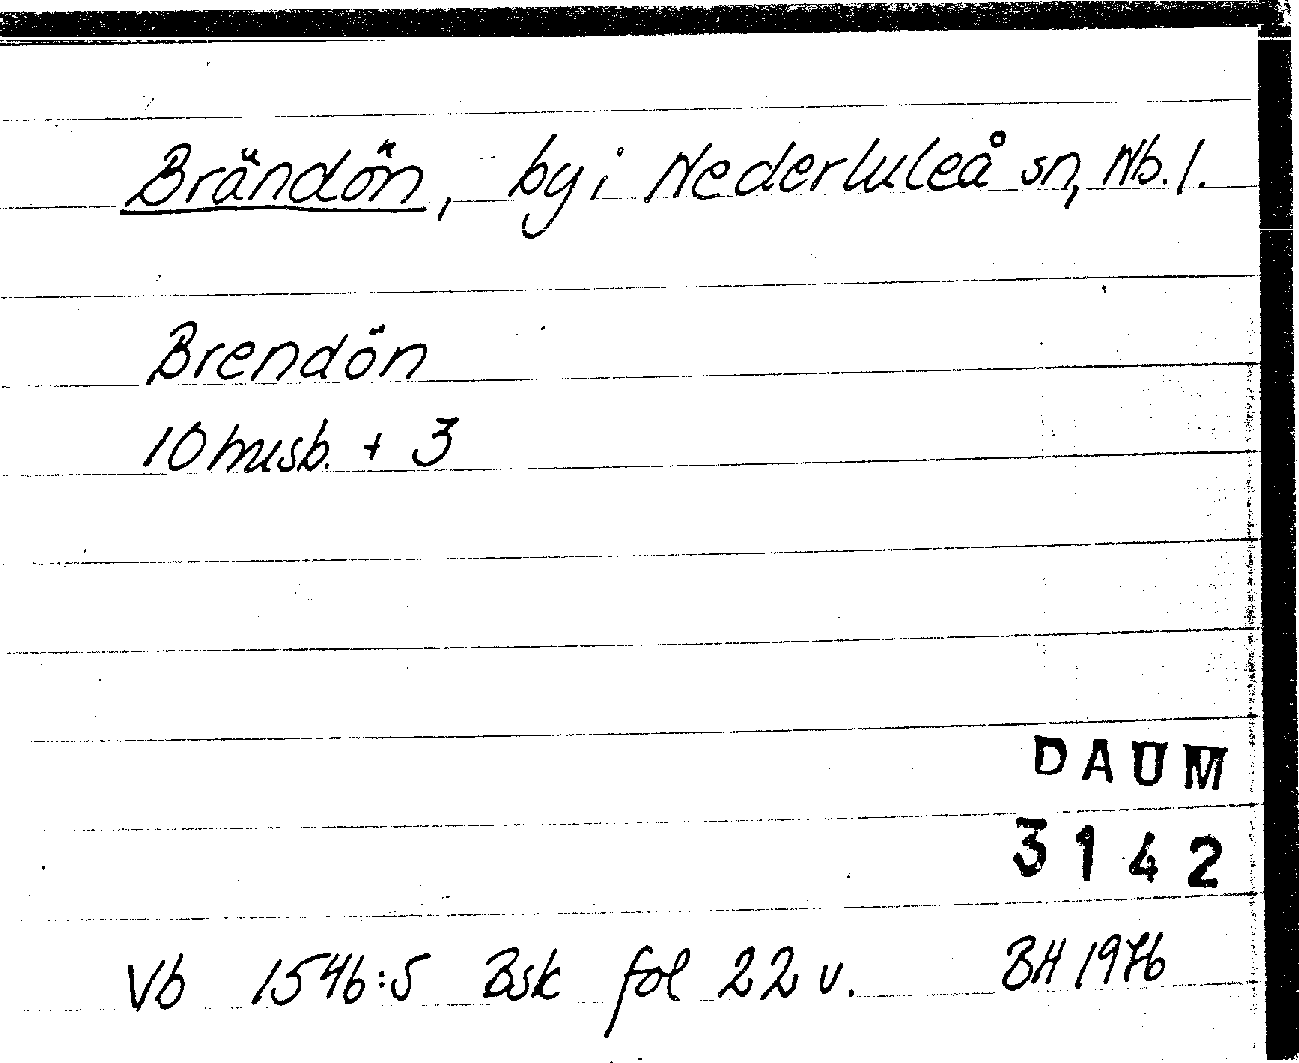 Brändön, by i Nederluleå sn, Nb. l.
Brendön
10 husb. + 3
DAUM
3142
Vb 1546:5 Bsk fol 22 v. BH 1976